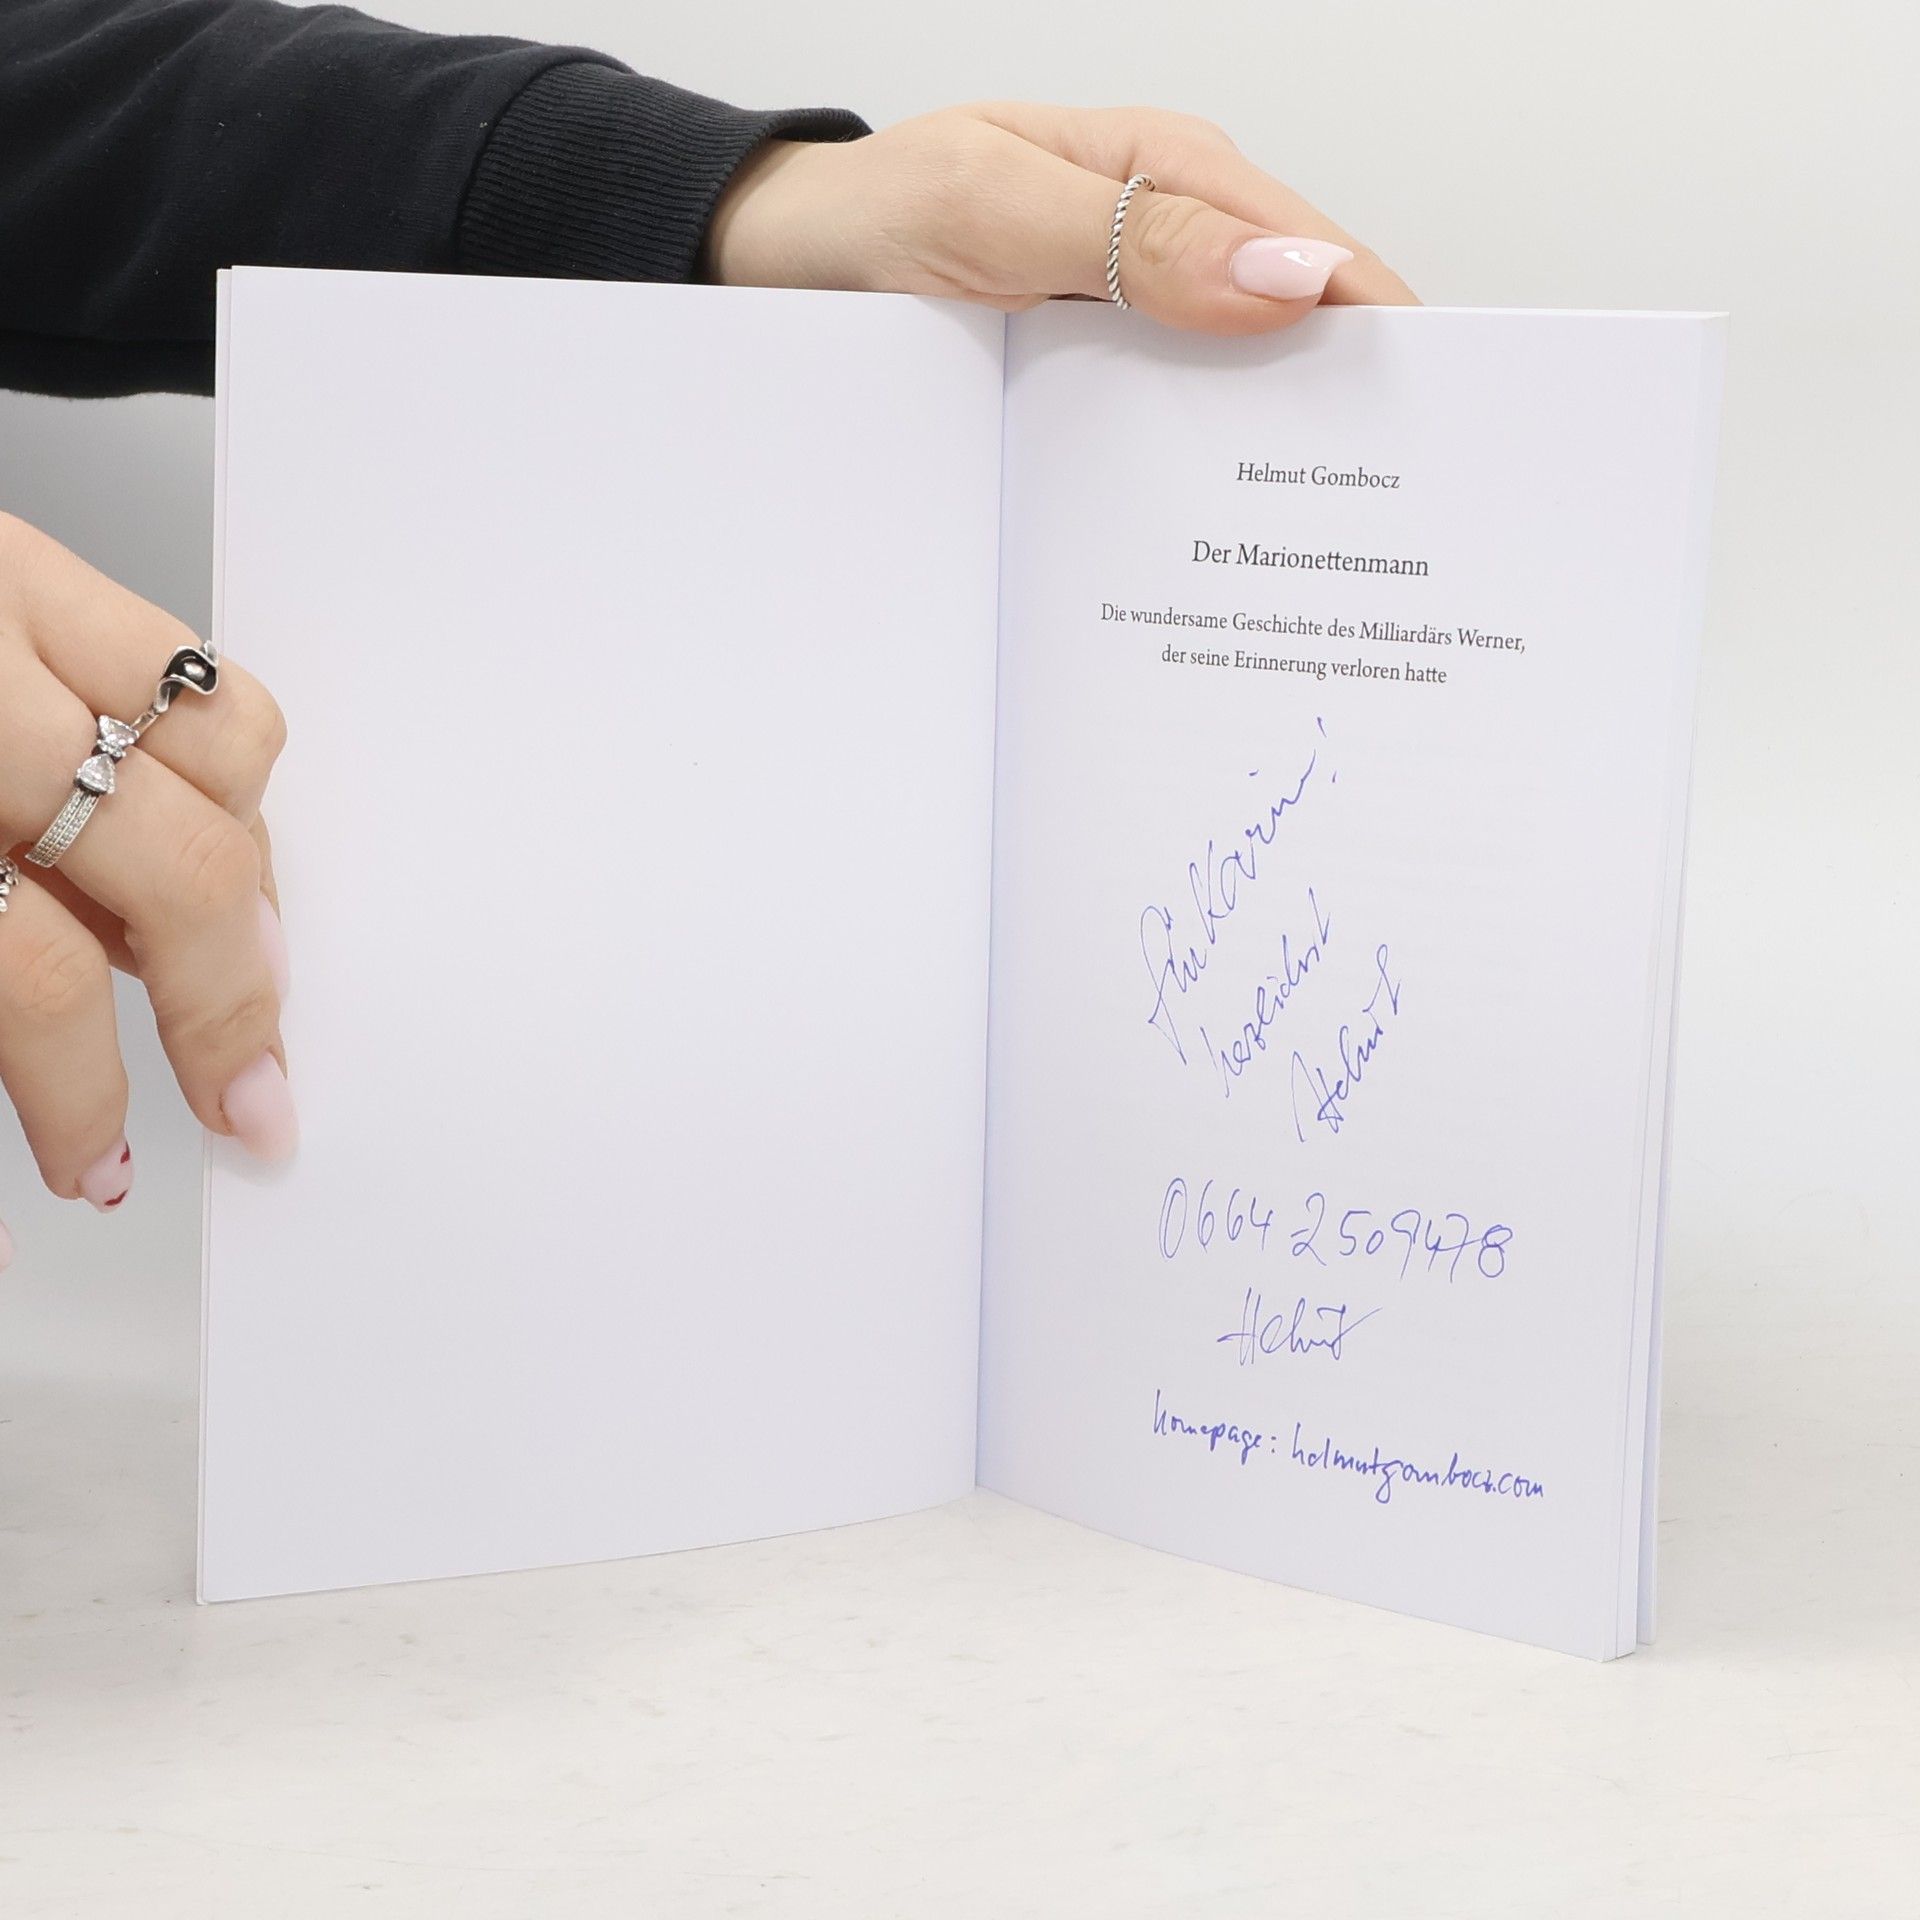 Helmut Gombocz
Der Marionettenmann
Die wundersame Geschichte des Milliardärs Werner,
der seine Erinnerung verloren hatte
Für Karin!
herzlichst
Helmut
0664 2509478
Helmut
homepage: helmutgombocz.com